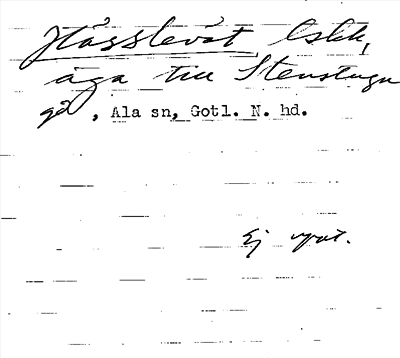 Hässlevät, lslk,
äga till Stenstugu
gd, Ala sn, Gotl. N. hd.
Ej uppt.